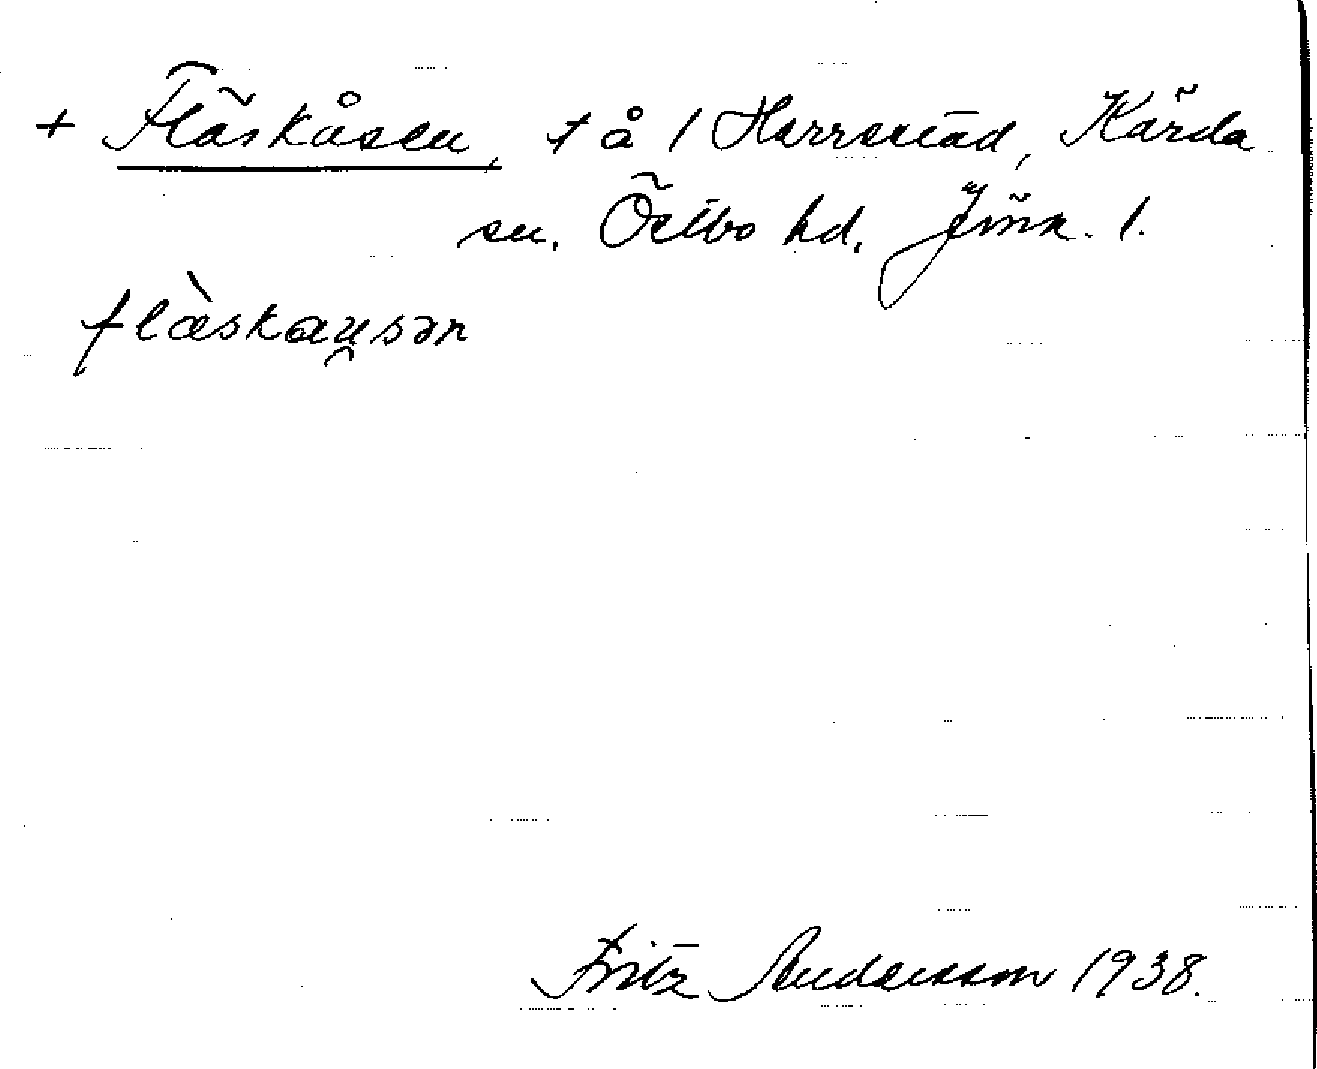 + Fläskåsen, t å 1 Herrestad, Kärda
sn. Östbo hd. Jönk. l.
flàskau̯sən
Fritz Andersson 1938.